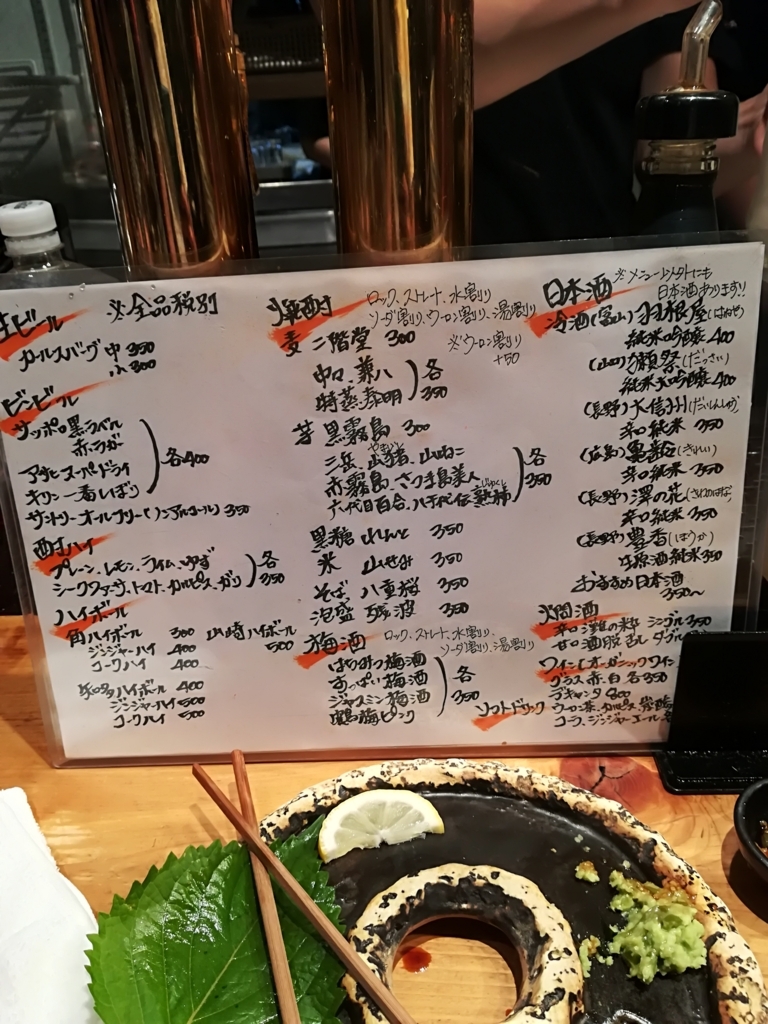 生ビール ※全品税別
カールスバーグ 中 350
小 300
ビンビール
サッポロ黒ラベル
赤ラガー
アサヒスーパードライ
キリン一番しぼり
各400
サントリーオールフリー(ノンアルコール) 350
酎ハイ
プレーン、レモン、ライム、ゆず
シークァーサ、トマト、カルピス、ガリ
各350
ハイボール
角ハイボール 300 山崎ハイボール 500
ジンジャーハイ 400
コークハイ 400
知多ハイボール 400
ジンジャーハイ 500
コークハイ 500
焼酎 ロック、ストレート、水割り
ソーダ割り、ウーロン割り、湯割り
※ウーロン割り
+50
麦 二階堂 300
中々、兼八
特蒸泰明
各350
芋 黒霧島 300
三岳、山猪、山ねこ
赤霧島、さつま島美人
六代目百合、八千代伝熟柿
各350
黒糖 れんと 350
米 山せみ 350
そば 八重桜 350
泡盛 残波 350
梅酒 ロック、ストレート、水割り
ソーダ割り、湯割り
はちみつ梅酒
すっぱい梅酒
ジャスミン梅酒
鶴梅ピンク
各350
日本酒 ※メニュー以外にも
日本酒あります!!
冷酒(富山)羽根屋(はねや)
純米吟醸 400
(山口)獺祭(だっさい)
純米大吟醸 400
(長野)大信州(だいしんしゅう)
辛口純米 350
(広島)亀齢(きれい)
辛口純米 350
(長野)澤の花(さわのはな)
辛口純米 350
(長野)豊香(ほうか)
生原酒純米 350
おすすめ日本酒
350〜
燗酒
辛口 灘の粋 シングル 350
甘口 酒股 ダブル
ワイン(オーガニックワイン
グラス 赤、白 各350
デキャンタ 800
ソフトドリンク ウーロン茶、カルピス、
コーラ、ジンジャーエール 各